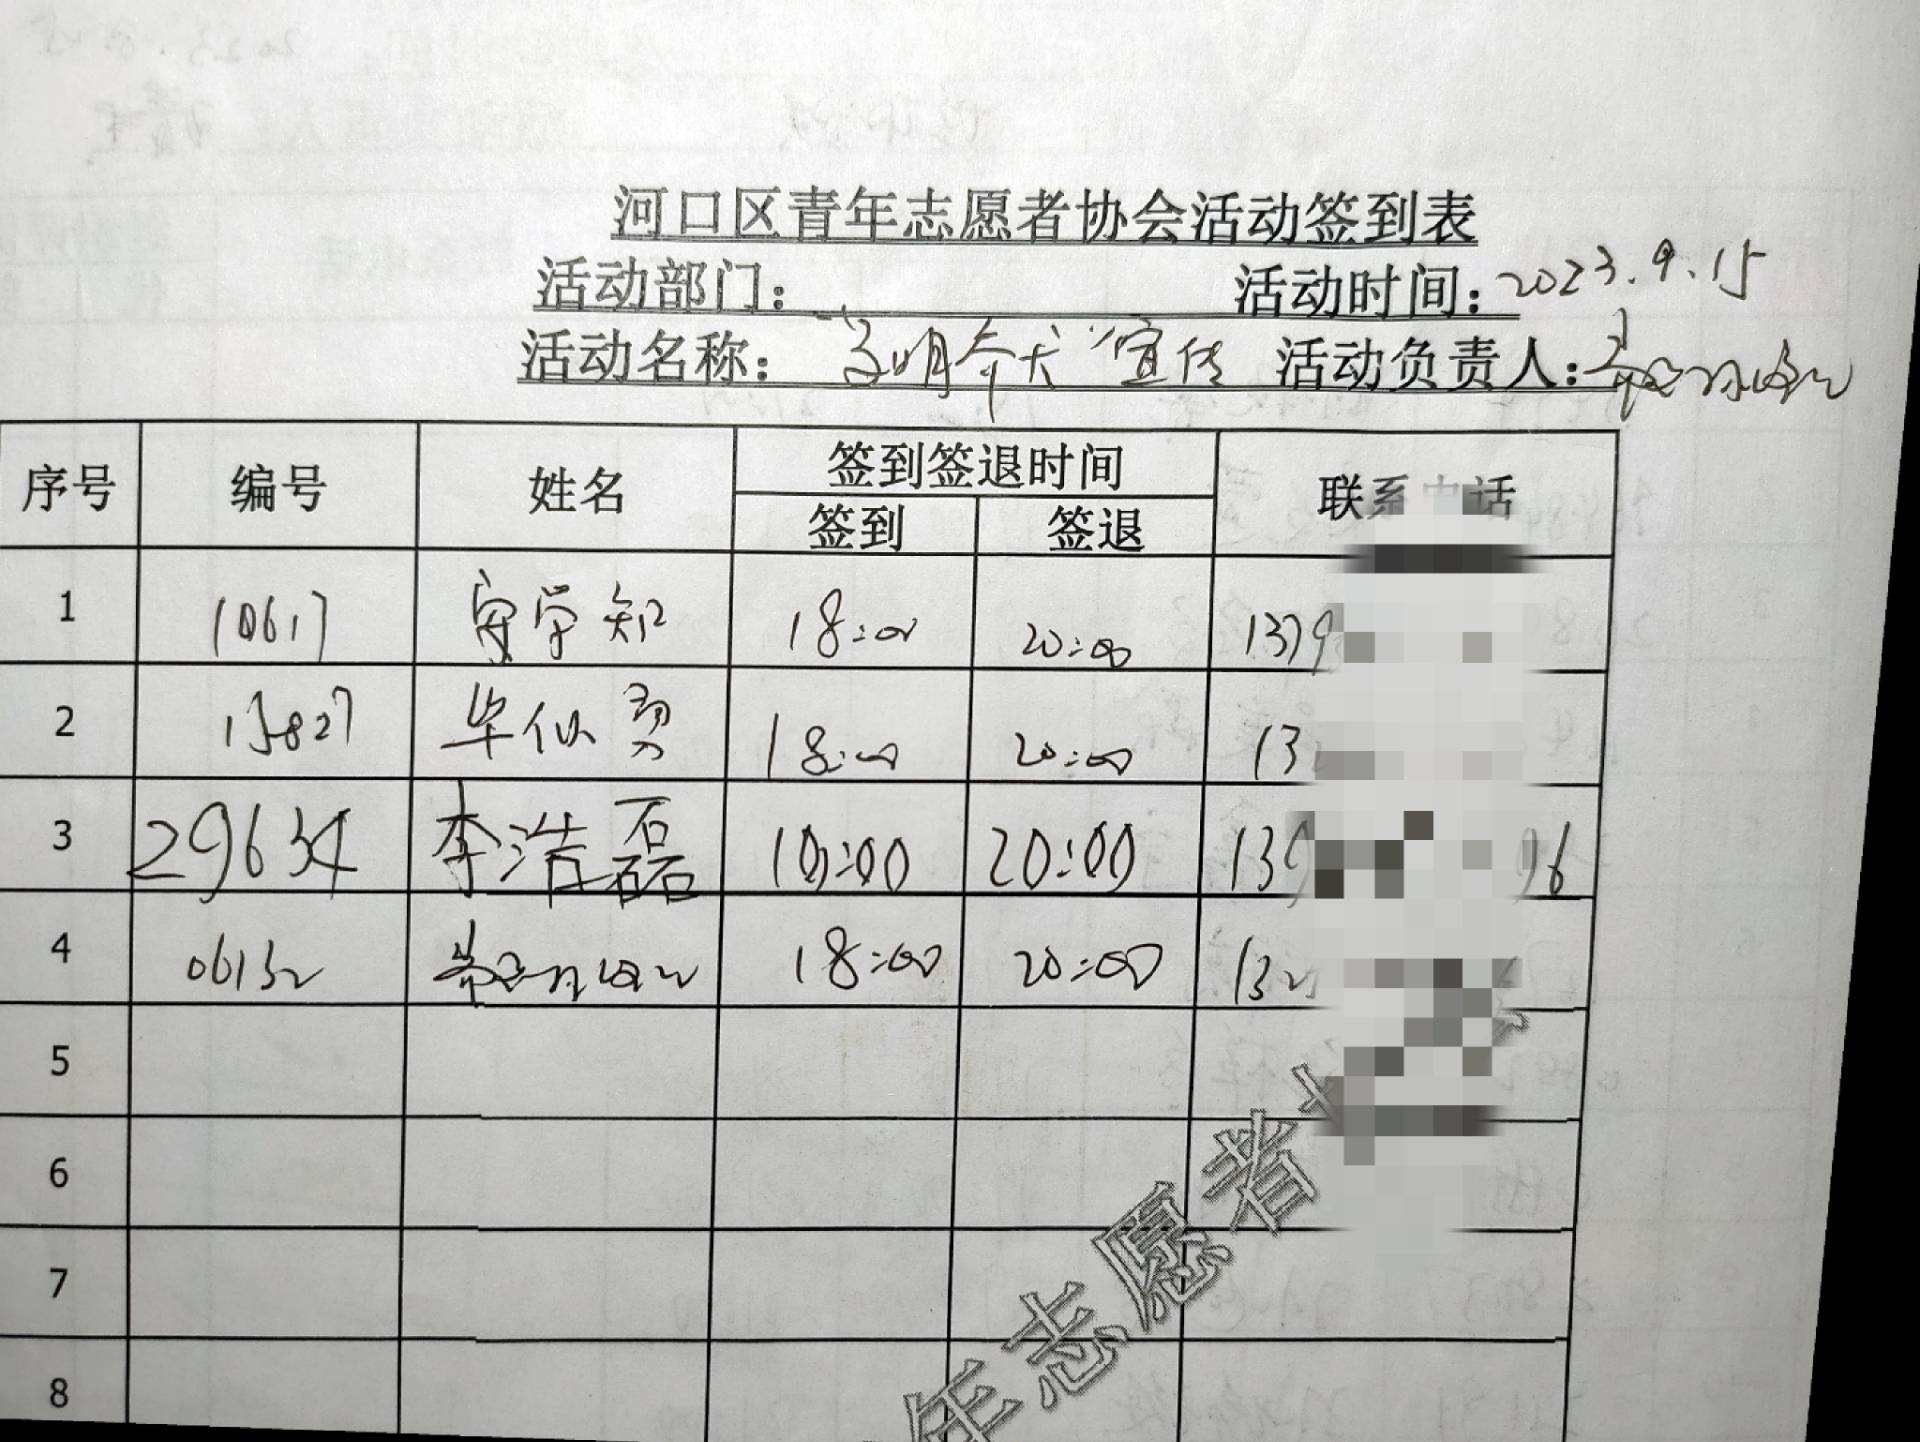 河口区青年志愿者协会活动签到表
活动部门： 活动时间：2023.9.15
活动名称：“文明养犬”宣传 活动负责人：
序号 编号 姓名 签到签退时间 联系电话
签到 签退
1 10617 学知 18:00 20:00 1379
2 15827 毕似勇 18:00 20:00 13
3 29634 李浩磊 10:00 20:00 139 96
4 06132 18:00 20:00 132
5
6
7
8
年志愿者